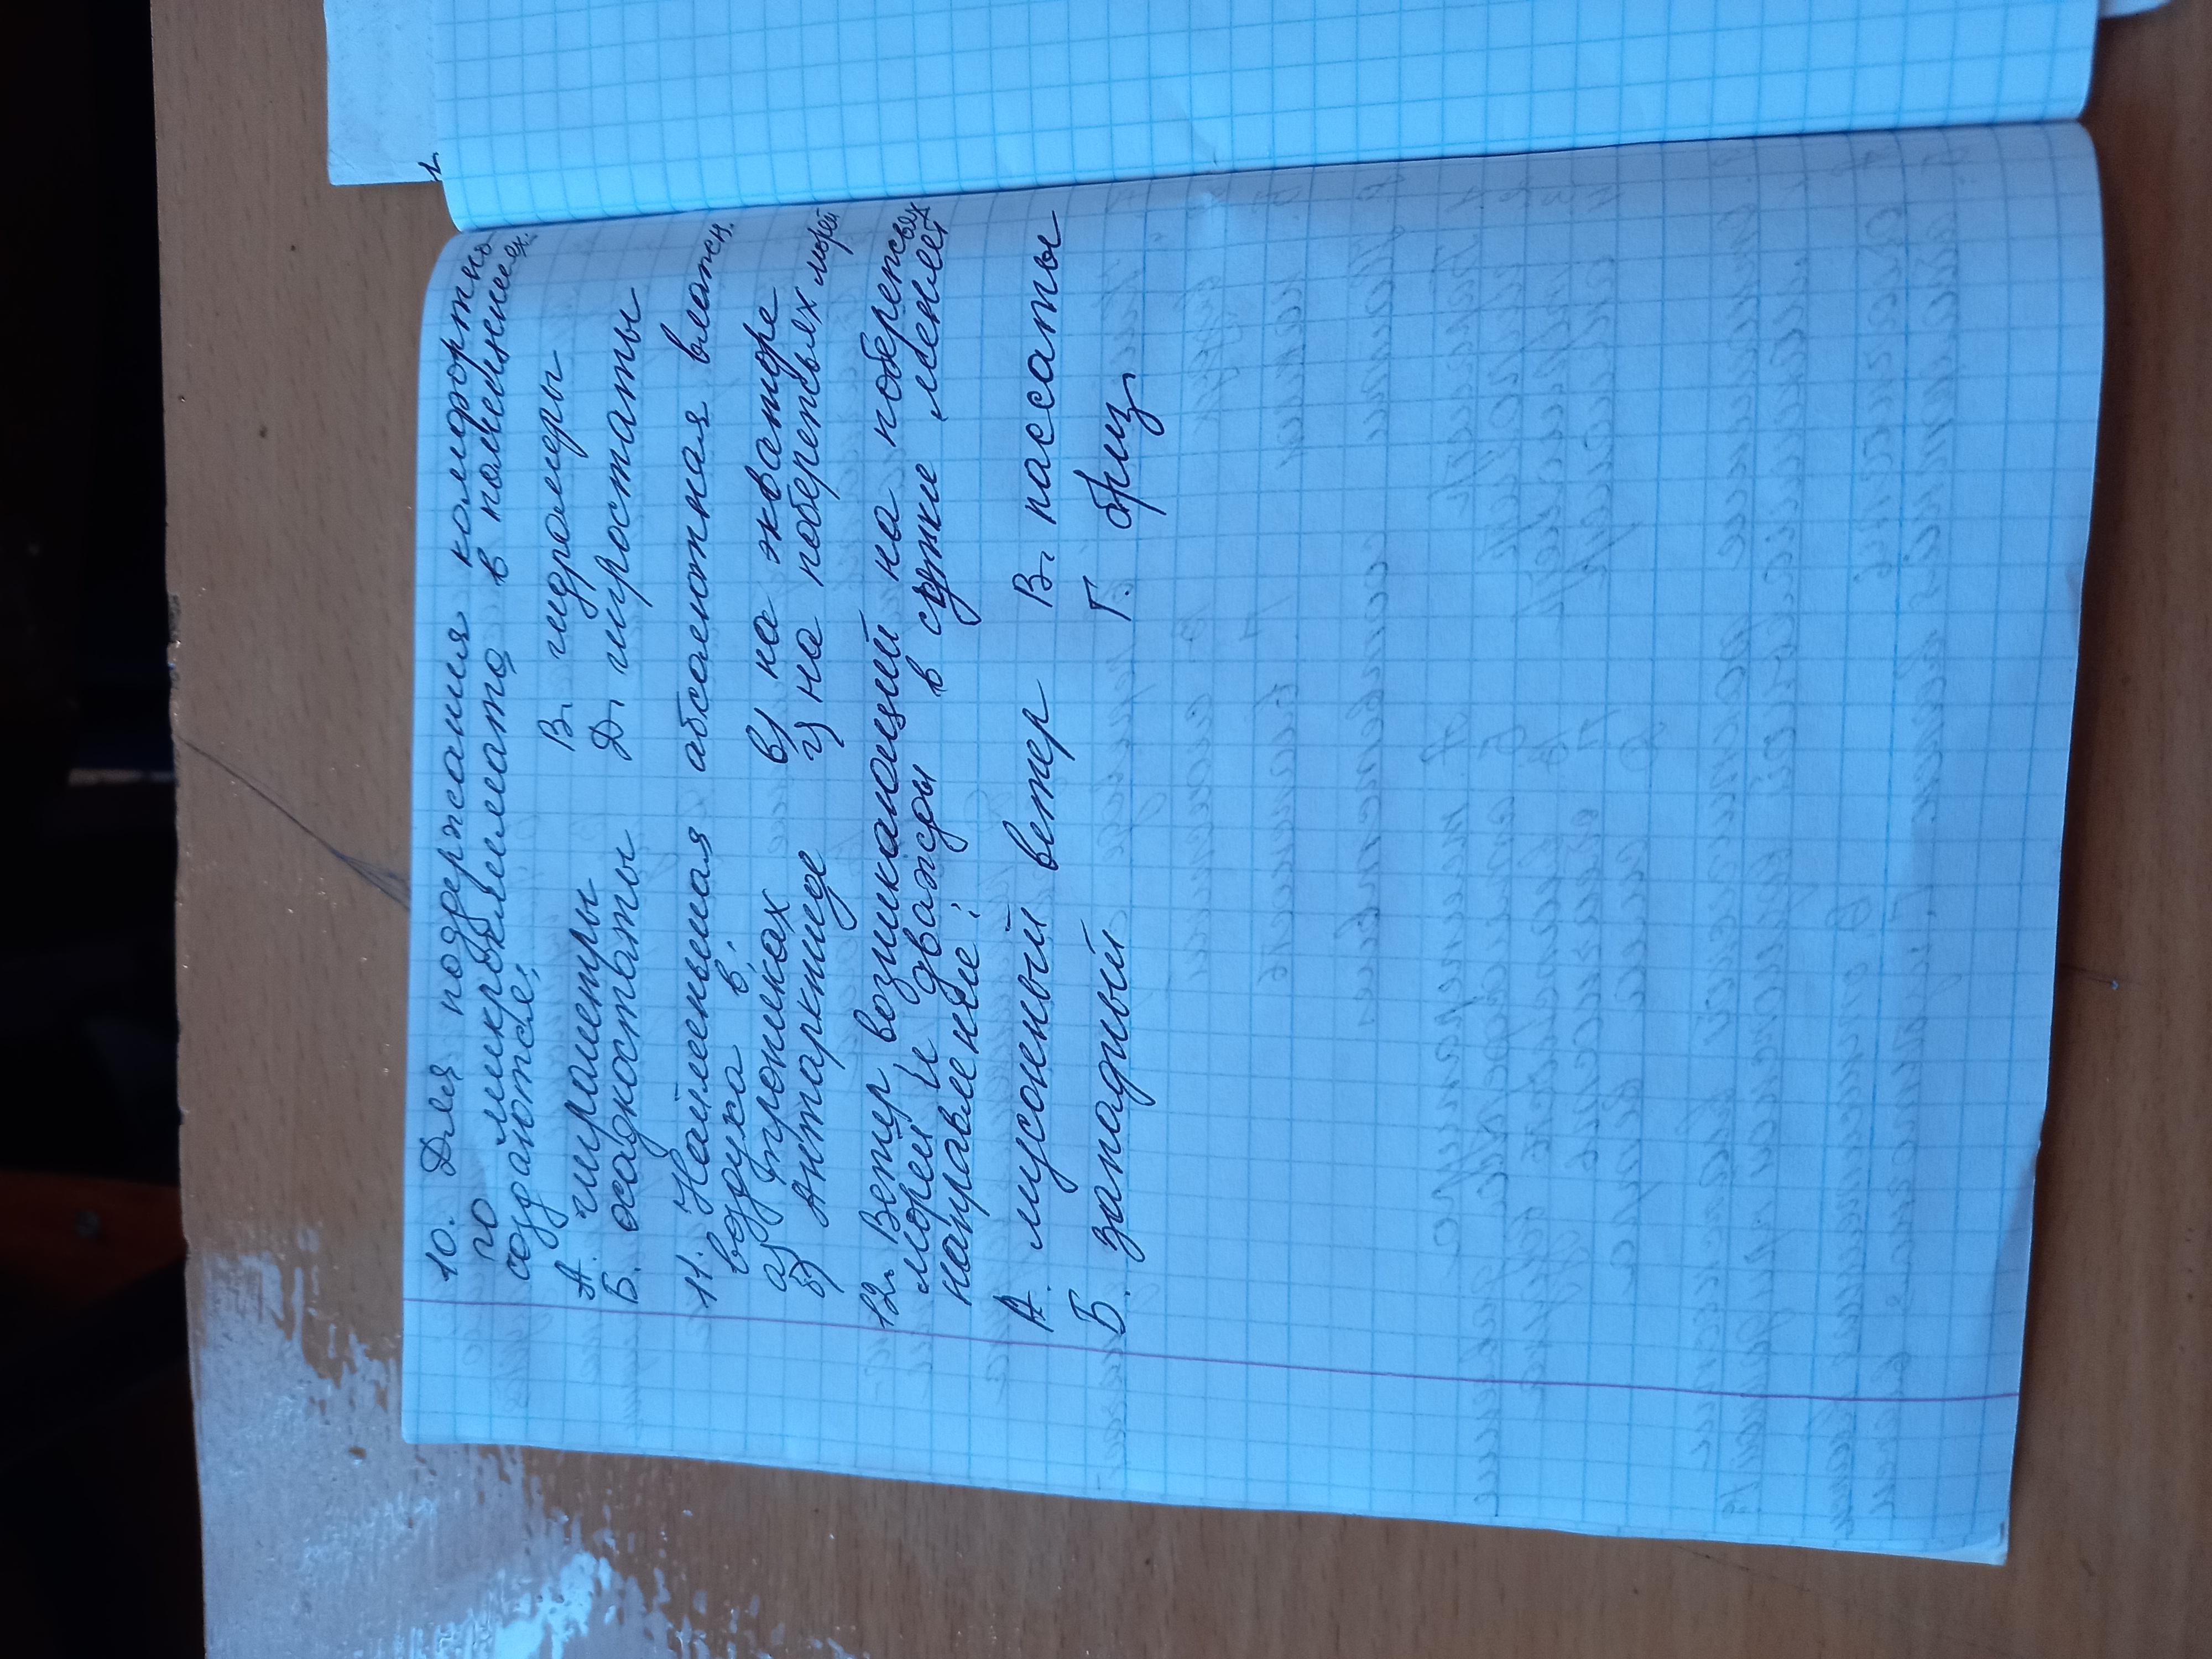 10. Для подержания комфортно
го микроклимата в помещениях.
создаются:
А. гигрометры В. гидрометры
Б. осадкостаты Д. гигростаты
11. Наименьшая абсолютная влажн.
воздуха в:
а) тропиках в) на экваторе
б) Антарктиде г) на побережьях морей
12. Ветер возникающий на побережьях
морей и дважды в сутки меняет
направление:
А. мусонный ветер В. пассаты
Б. западный Г. бриз